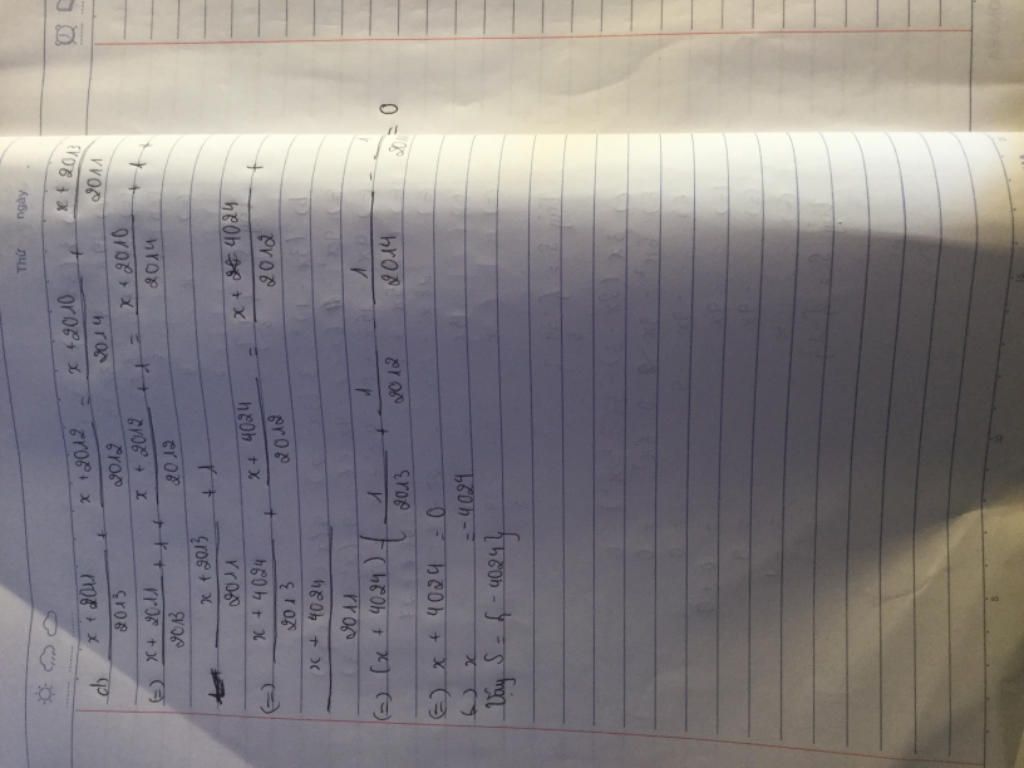 Thứ ngày
d) (x + 2011)/2013 + (x + 2012)/2012 = (x + 2010)/2014 + (x + 2013)/2011
(=) (x + 2011)/2013 + 1 + (x + 2012)/2012 + 1 = (x + 2010)/2014 + 1 +
(x + 2013)/2011 + 1
(=) (x + 4024)/2013 + (x + 4024)/2012 = (x + 4024)/2012 +
(x + 4024)/2011
(=) (x + 4024) (1/2013 + 1/2012 - 1/2014 - 1/2011 = 0
(=) x + 4024 = 0
(=) x = -4024
Vậy S = { -4024}